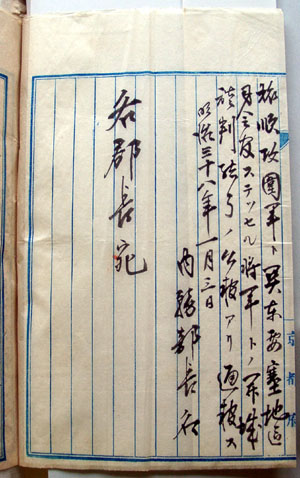 旅順攻圍軍ト関東要塞地区
司令官ステツセル将軍トノ開城
談判結了ノ公報アリ通報ス
明治三十八年一月三日
内務部長名
各郡長宛
京都府